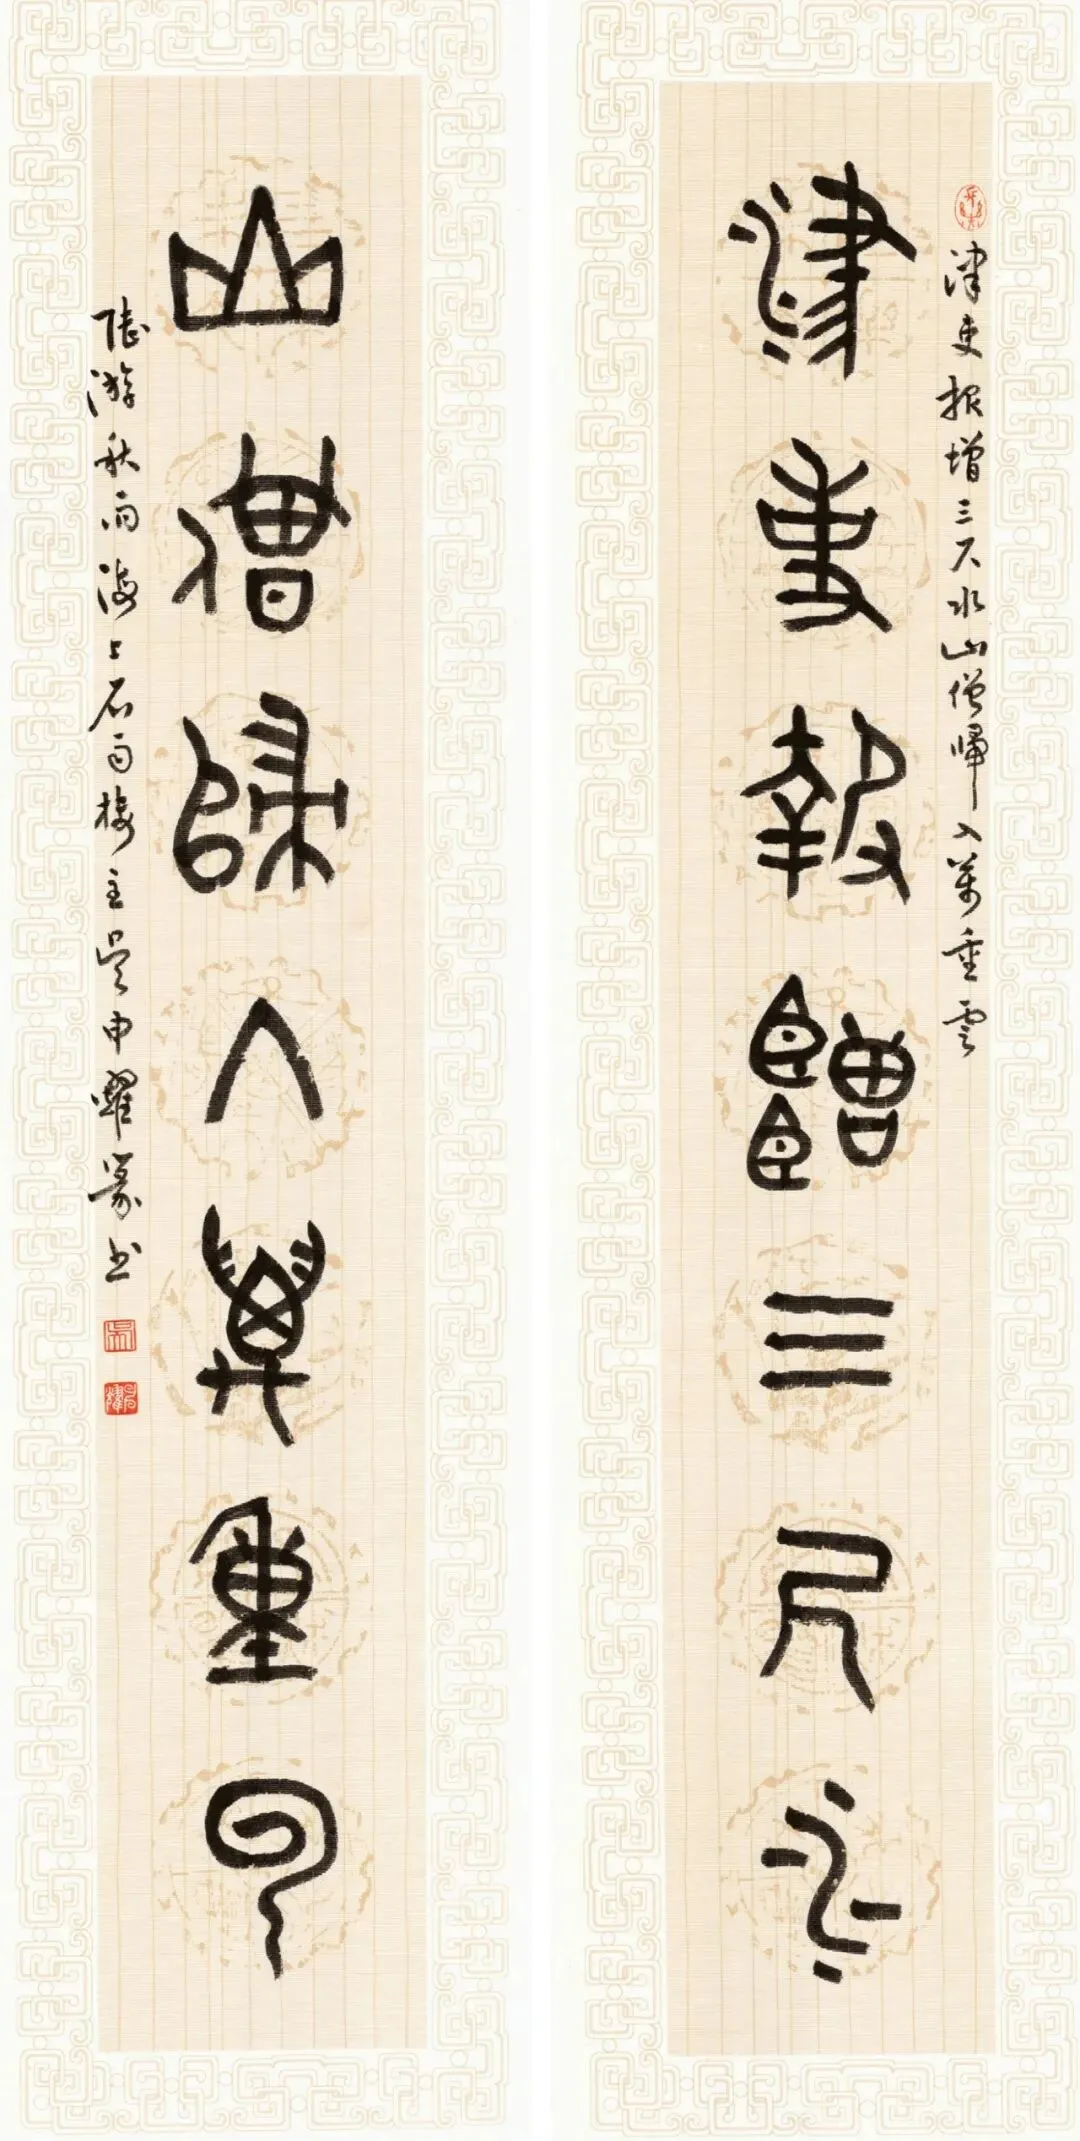 津吏報增三尺水
津吏报增三尺水山僧归入万重云
山僧歸入萬重雲
陆游秋雨 海上石雨楼主吴申耀篆书